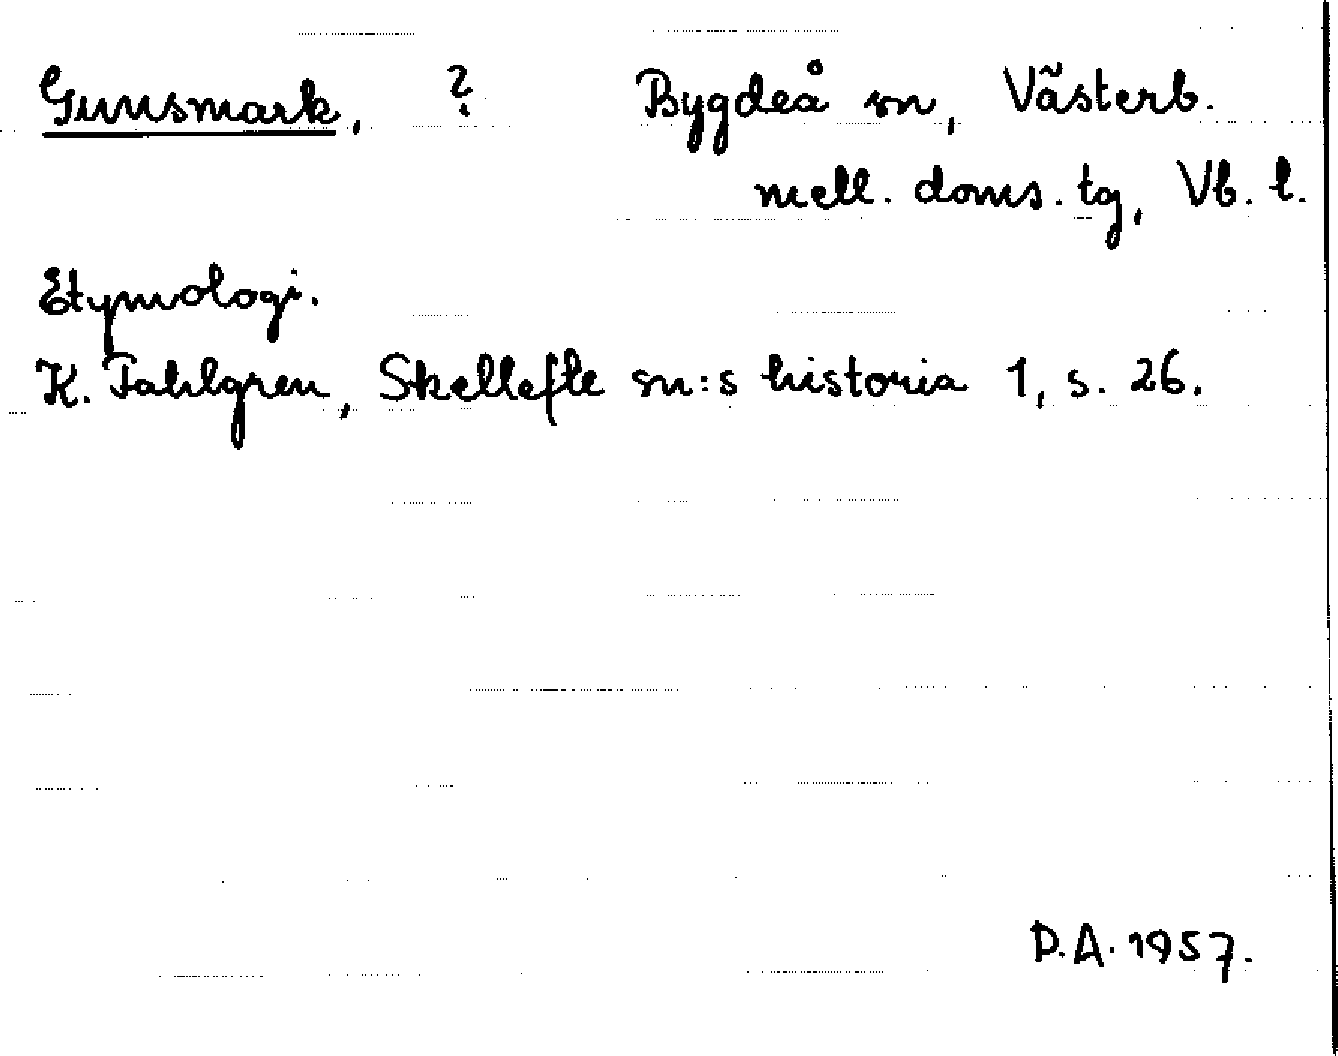 Gunsmark, ? Bygdeå sn, Västerb.
mell. doms. tg, Vb. l.
Etymologi.
K. Fahlgren, Skellefte sn:s historia 1, s. 26.
D.A. 1957.